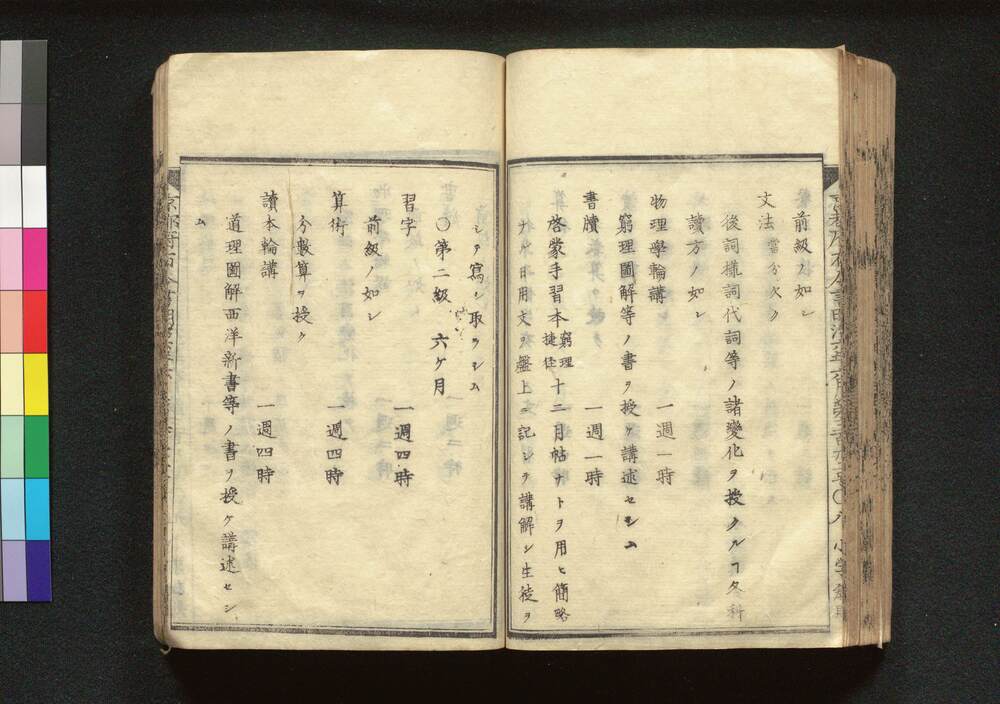 前級ノ如シ
文法 當分欠ク
後詞様詞代詞等ノ諸變化ヲ授クルヿ各科
讀方ノ如シ
物理學輪講 一週一時
窮理圖解等ノ書ヲ授ケ講述セシム
書牘 一週一時
啓蒙手習本窮理捷径十二月帖ナトヲ用ヒ簡略
ナル日用文ヲ盤上ニ記シテ講解シ生徒ヲ
シテ寫シ取ラシム
〇第二級 六ケ月
習字 一週四時
前級ノ如シ
算術 一週四時
分數算ヲ授ク
讀本輪講 一週四時
道理圖解西洋新書等ノ書ヲ授ケ講述セシ
ム